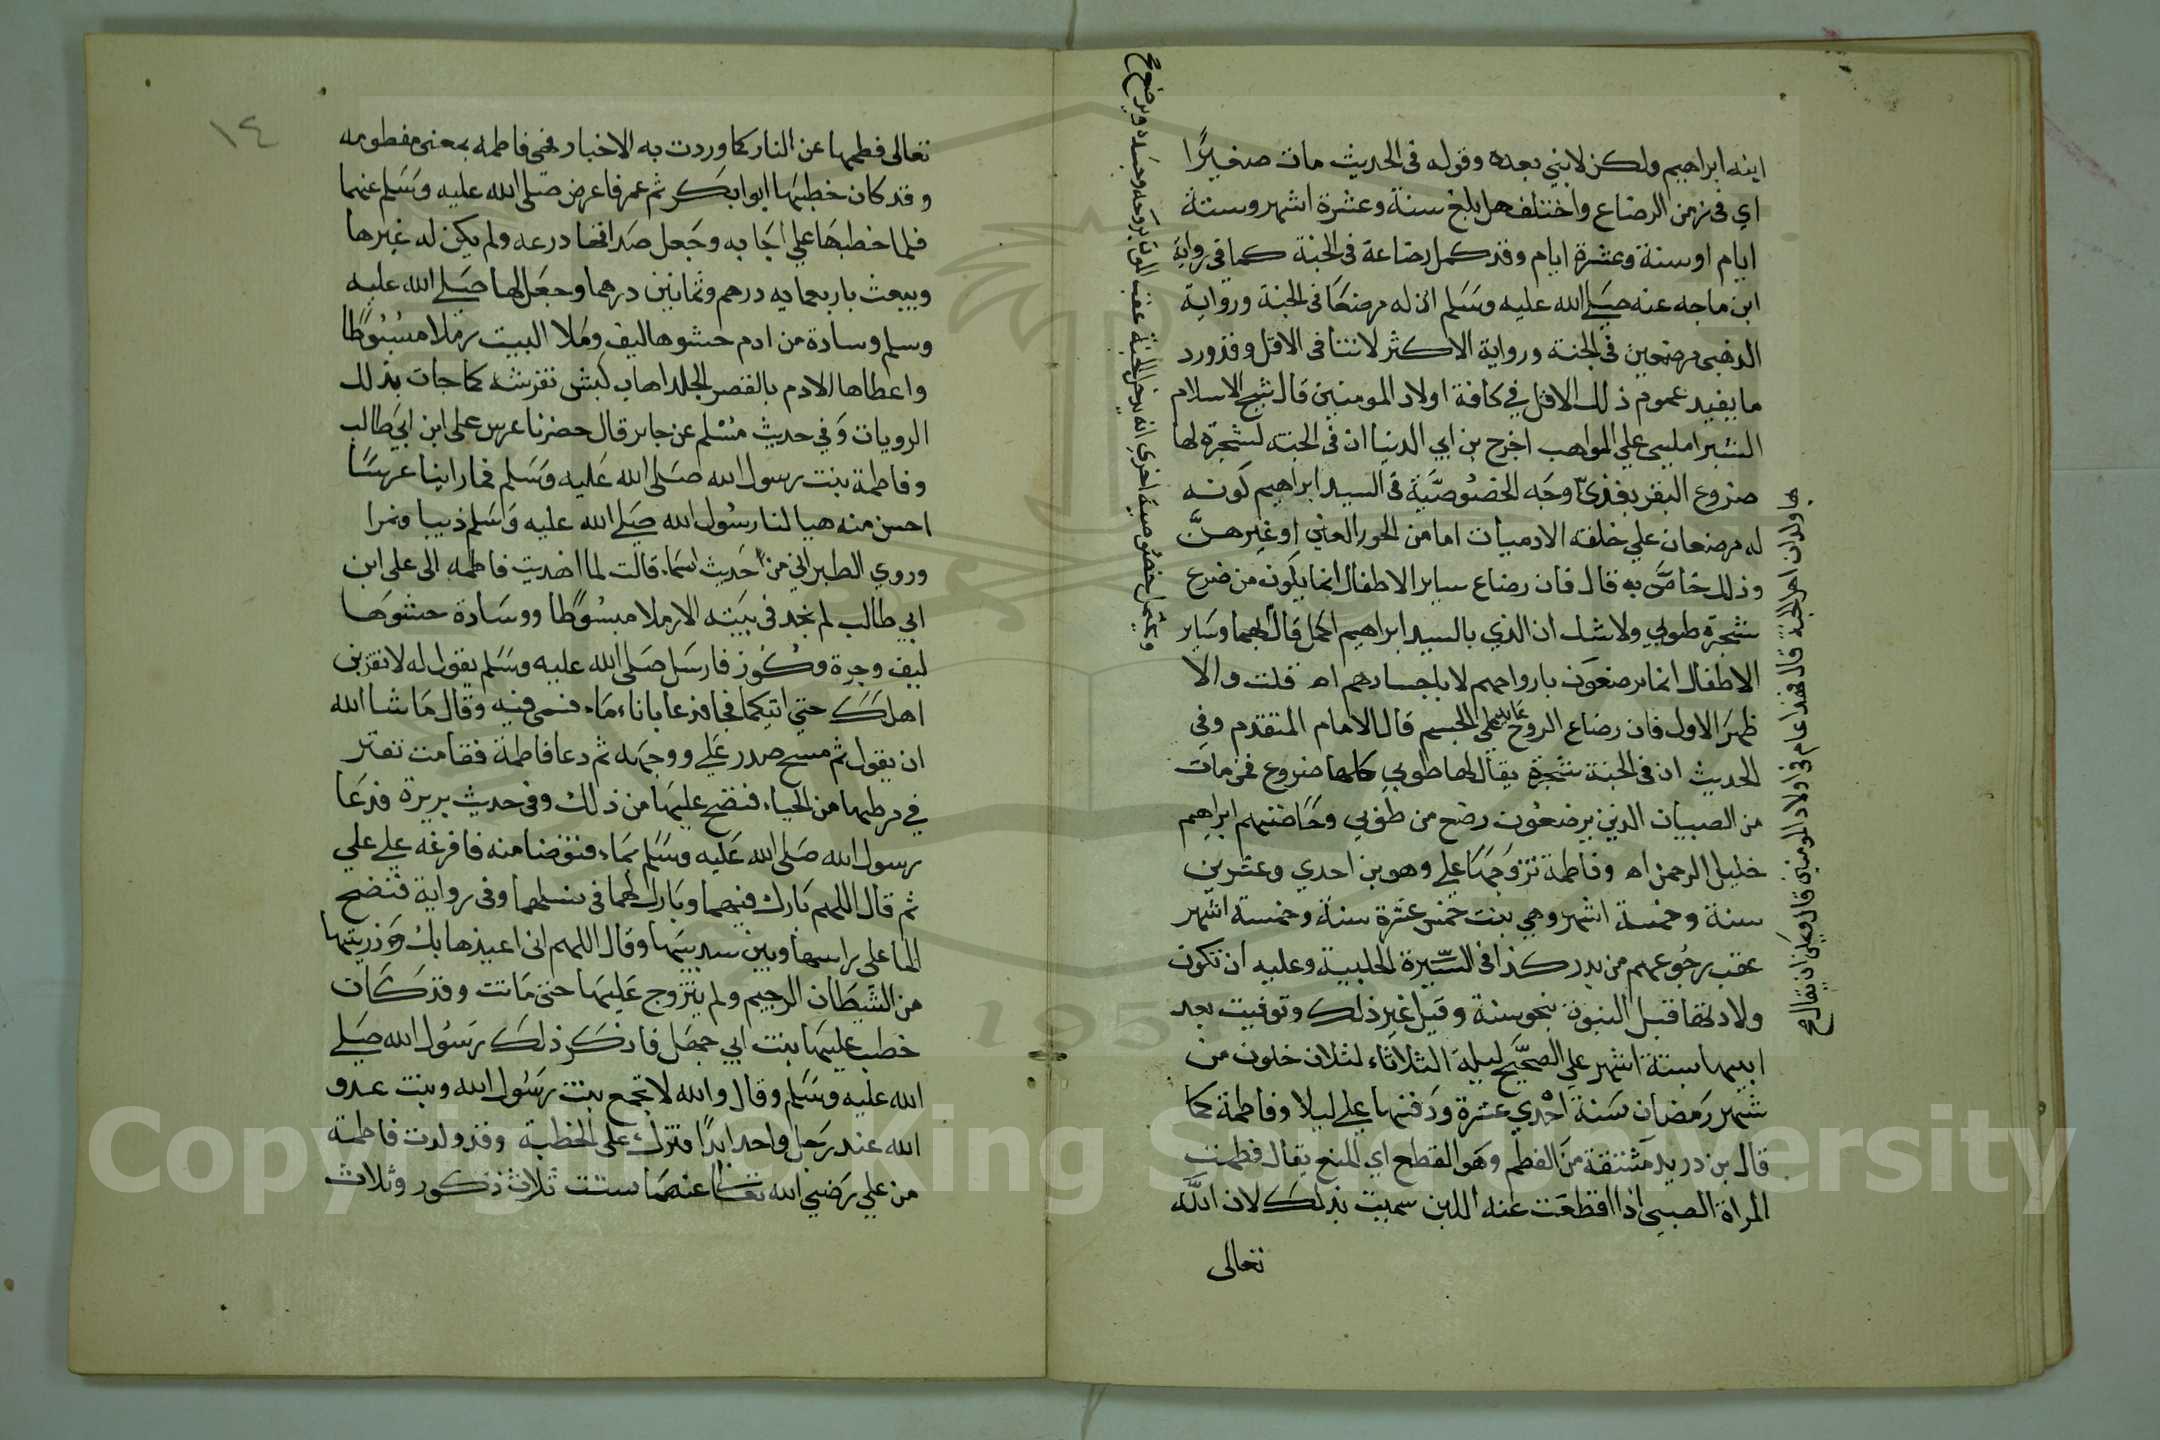 ابنه ابراهيم ولكن لا نبي بعده وقوله في الحديث مات صغيرًا
اي في زمن الرضاع واختلف هل بلغ سنة وعشرة اشهر وستة
ايام او سنة وعشرة ايام وقد كمل رضاعة في الجنة كما في رواية
ابن ماجه عنه صلى الله عليه وسلم ان له مرضعًا في الجنة ورواية
الذهبي مرضعين في الجنة ورواية الاكثر لا تنافي الاقل وقد ورد
ما يفيد عموم ذلك الاقل في كافة اولاد المومنين قال شيخ الاسلام
الشبراملسي علي المواهب اخرج بن ابي الدنيا ان في الجنة لشجرة لها
ضروع البقر يغذى وجه الخصوصية في السيد ابراهيم كونه
له مرضعان علي خلقة الادميات اما من الحور العين او غيرهنَّ
وذلك خاصّ به قال فان رضاع ساير الاطفال انما يكون من ضرع
شجرة طوبي ولا شك ان الذي بالسيد ابراهيم اكمل قال بعضهم وساير
الاطفال انما يرضعون بارواحهم لا باجسادهم اه قلت والا
ظهر الاول فان رضاع الروح علي الجسم قال الامام المتقدم وفي
الحديث ان في الجنة شجرة يقال لها طوبي كلها ضروع فمن مات
من الصبيان الذين يرضعون رضع من طوبي وحاضنيهم ابراهيم
خليل الرحمن اه وفاطمة تزوجها علي وهو بن احدي وعشرين
سنة وخمسة اشهر وهي بنت خمس عشرة سنة وخمسة اشهر
عقب رجوعهم من بدر كذا في السّيرة الحلبية وعليه ان تكون
ولادتها قبل النبوة بنحو سنة وقيل غير ذلك وتوفيت بعد
ابيها بستة اشهر علي الصحيح ليلة الثلاثاء لثلاث خلون من
شهر رمضان سنة احدي عشرة ودفنها علي ليلا وفاطمة كما
قال بن دريد مشتقة من الفطم وهو القطع اي المنع يقال فطمت
المراة الصبي اذا اقطعت عنه اللبن سميت بذلك لان الله
تعالى
ها ولدان اهل الجنة قال فهذا عام في اولاد المومنين قال ويمكن ان يقال
ويحتمل خصوصية اخرى انه يدخل الجنة عقب الموت بروحه وجسده ويرضع
١٤
تعالى فطمها عن النار كما وردت به الاخبار فهي فاطمه بمعنى مفطومه
وقد كان خطبها ابوا بكر ثم عمر فاعرض صلى الله عليه وسلم عنهما
فلما خطبها علي اجابه وجعل صداقها درعه ولم يكن له غيرها
وبيعت باربعمايه درهم وثمانين درهما وجعل لها صلى الله عليه
وسلم وسادة من ادم حشوها ليف وملا البيت رملا مبسوطا
واعطاها الادم بالقصر الجلد اهاب كبش تفرشه كما جات بذلك
الرويات وفي حديث مسلم عن جابر قال حضرنا عرس على ابن ابي طالب
وفاطمة بنت رسول الله صلى الله عليه وسلم فما راينا عرسًا
احسن منه هيا لنا رسول الله صلى الله عليه وسلم زبيبا وتمرا
وروي الطبراني من حديث اسماء قالت لما اهديت فاطمه الى على ابن
ابي طالب لم نجد في بيته الا رملا مبسوطا ووسادة حشوها
ليف وجرة وكوز فارسل صلى الله عليه وسلم يقول له لا تقربن
اهلك حتي اتيكما فجا فدعا باناء ماء فسمى فيه وقال ما شا الله
ان يقول ثم مسح صدر علي ووجهه ثم دعا فاطمة فقامت تعثر
في مرطها من الحياء فنضح عليها من ذلك وفي حديث بريرة فدعا
رسول الله صلى الله عليه وسلم بماء فتوضا منه فافرغه علي علي
ثم قال اللهم بارك فيهما وبارك لهما في نسلهما وفي رواية فنضح
الما على راسها وبين ثدييها وقال اللهم انى اعيذها بك وذريتها
من الشيطان الرجيم ولم يتزوج عليها حتى ماتت وقد كان
خطب عليها بنت ابي جهل فانكر ذلك رسول الله صلي
الله عليه وسلم وقال والله لا تجمع بنت رسول الله وبنت عدو
الله عند رجل واحد ابدًا فترك على الخطبة وقد ولدت فاطمة
من علي رضي الله تعالى عنهما ستت ثلاث ذكور وثلاث
Copyright © King Saud University
195